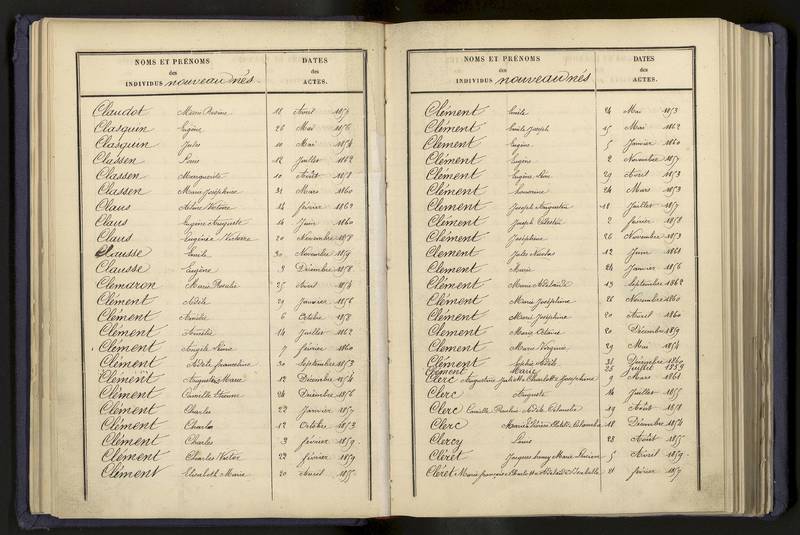 NOMS ET PRÉNOMS
des
INDIVIDUS nouveau nés.
DATES
des
ACTES.
Claudot 18 Avril
Clasquin Eugène 26 Mai 1856
Clasquin Jules 10 Mai 1854
Classen 12 Juillet 1862
Classen Marguerite 10 Août 1858
Classen Marie Joséphine 31 Mars 1860
Claus Victoire 14 février 1862
Claus Eugène Auguste 14 Juin 1860
Claus Eugénie Victoire 20 Novembre 1858
Clausse Emile 30 Novembre 1859
Clausse Eugène 9 Décembre 1858
Clemdron Marie Rosalie 25 Avril 1854
Clément Adèle 29 Janvier 1856
Clément Amédée 6 Octobre 1858
Clément Amélie 14 Juillet 1862
Clément Angèle 7 février 1860
Clément Adèle francoline 30 Septembre 1853
Clément Auguste Marie 12 Décembre 1854
Clément Camille Etienne 24 Décembre 1856
Clément Charles 22 Janvier 1857
Clément Charles 12 Octobre 1853
Clément Charles 3 février 1859.
Clément Charles Victor 22 février 1859
Clément Elisabeth Marie 20 Avril 1855
NOMS ET PRÉNOMS
des
INDIVIDUS nouveau nés
DATES
des
ACTES.
Clément Emile 24 Mai 1853
Clément Emile Joseph 15 Mai 1862
Clément Eugène 5 Janvier 1860
Clément Eugène 2 Novembre 1857
Clément Eugène 29 Avril 1853
Clément honorine 24 Mars 1853
Clément Joseph Augustin 18 Juillet 1857
Clément Joseph Célestin 2 février 1858
Clément Joséphine 26 Novembre 1853
Clement Jules Nicolas 12 Juin 1861
Clement Marie 24 Janvier 1856
Clement Marie Adélaïde 13 Septembre 1862
Clément Marie Joséphine 26 Novembre 1860
Clément Marie Joséphine 20 Avril 1860
Clement Marie 20 Décembre 1859
Clement Marie Virginie 29 Mai 1854
Clément Sophie Adèle 31 Décembre 1860
Clément Marie 25 Juillet 1859
Clerc Augustine Juliette Charlotte Joséphine 9 Mars 1861
Clerc Auguste 14 Juillet 1855
Clerc Camille Adèle 19 Août 1858
Clerc Marie Colombe 18 Décembre 1854
Clercy Louis 28 Août 1855
Cléret Jacques Marie Lucien 5 Avril 1859.
Cléret Marie françoise Charlotte Adélaïde Isabelle 21 février 1857